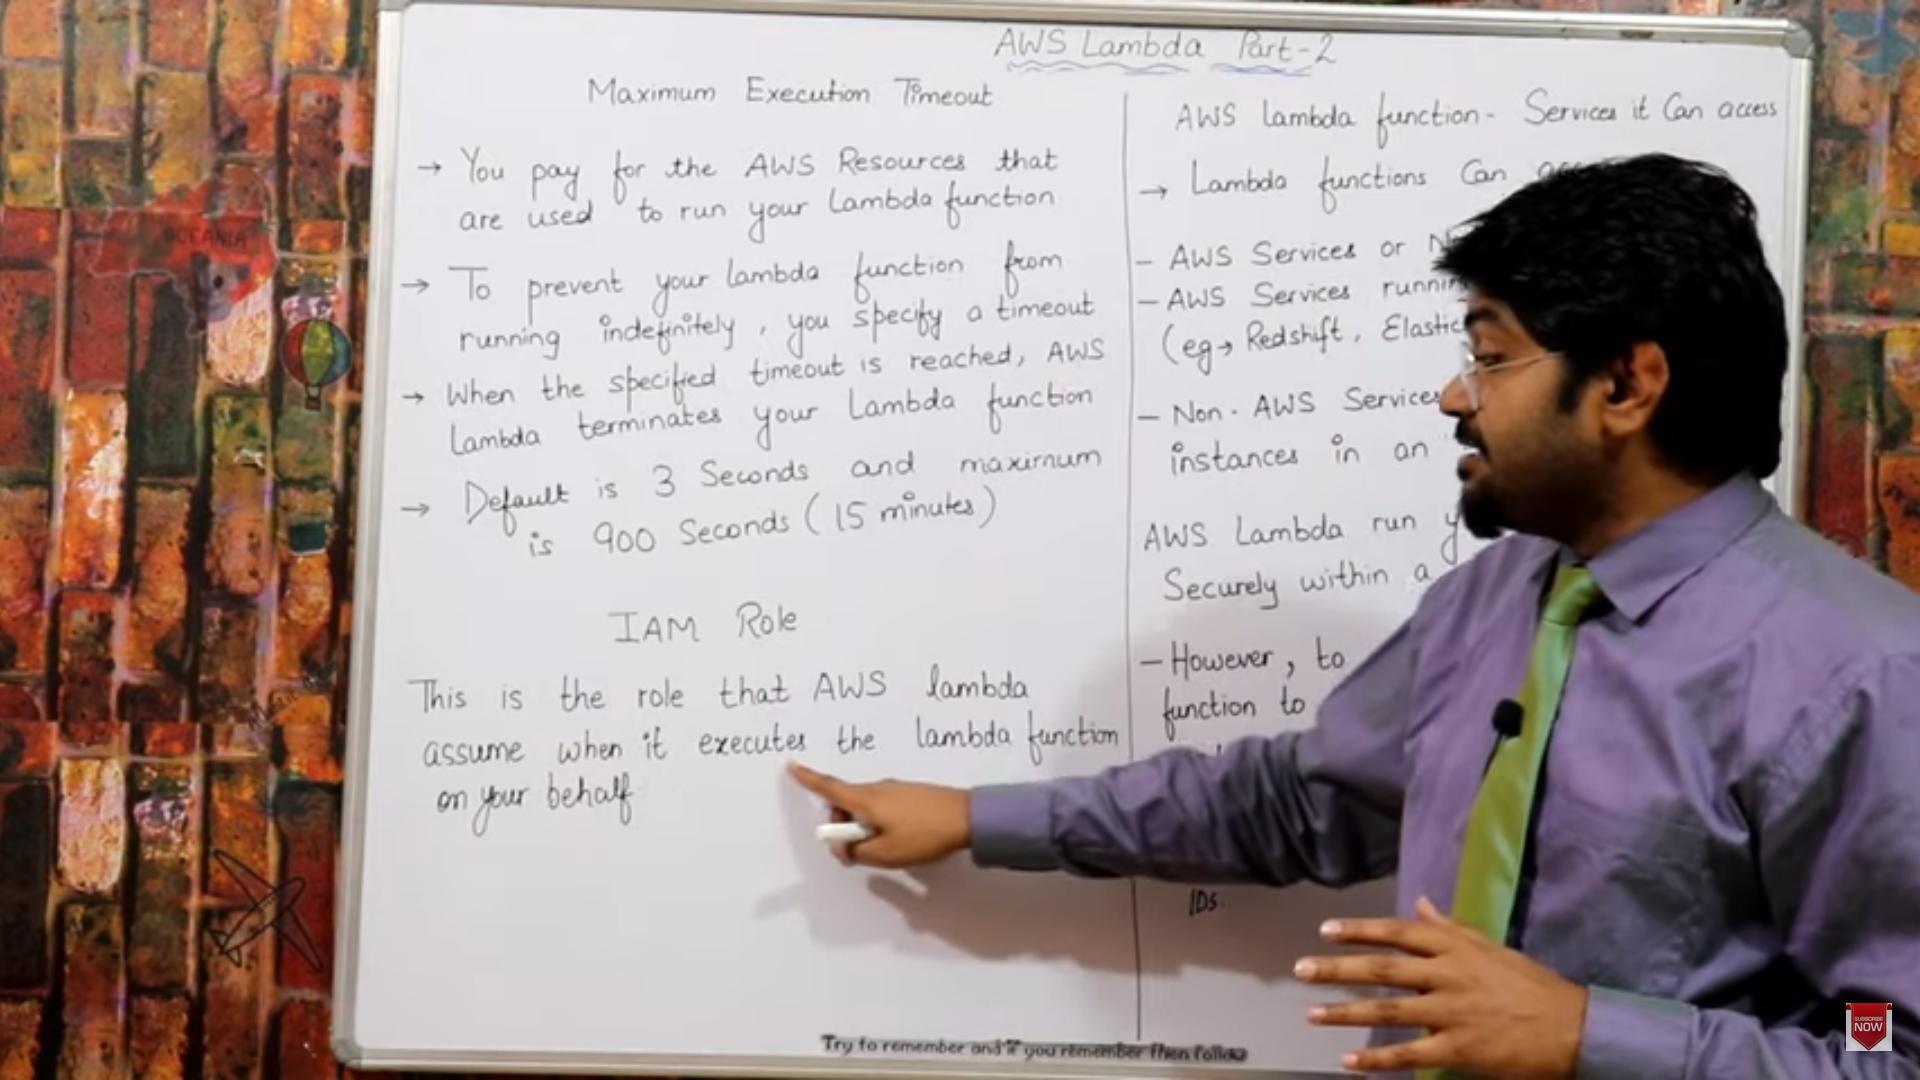 AWS Lambda Part-2
Maximum Execution Timeout
→ You pay for the AWS Resources that
are used to run your Lambda function
→ To prevent your lambda function from
running indefinitely, you specify a timeout
→ When the specified timeout is reached, AWS
Lambda terminates your Lambda function
→ Default is 3 Seconds and maximum
is 900 Seconds (15 minutes)
IAM Role
This is the role that AWS lambda
assume when it executes the lambda function
on your behalf
AWS lambda function - Services it Can access
→ Lambda functions Can
- AWS Services or
- AWS Services
(eg → Redshift, Elastic
- Non-AWS Services
instances in an
AWS Lambda run
Securely within a
- However, to
function to
IDs.
Try to remember and if you remember then follow
OCEANIA
SUBSCRIBE
NOW